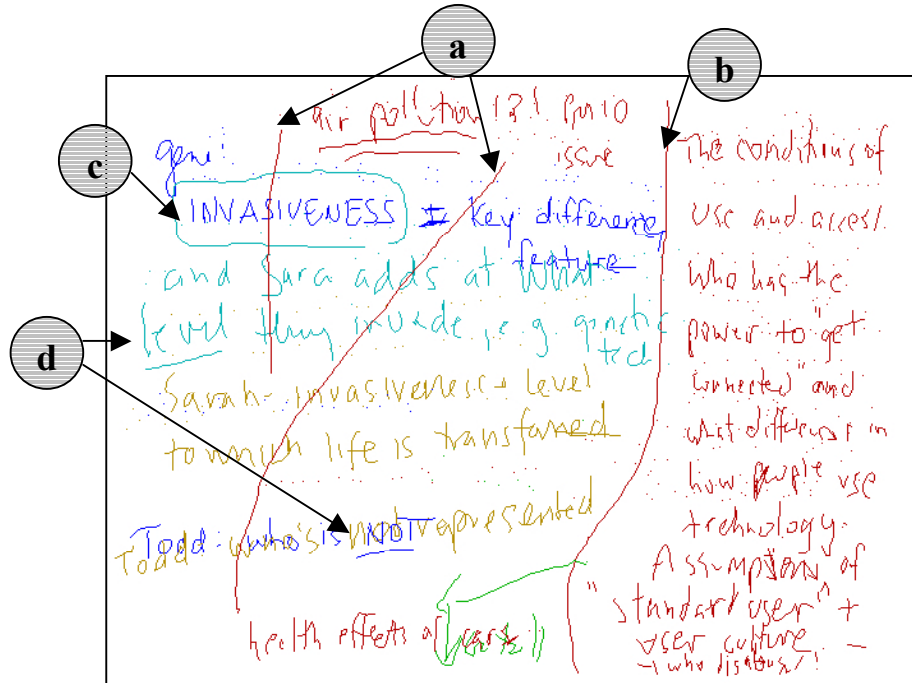 a
b
c
d
air pollution !?! PM10
issue
gene:
INVASIVENESS = key difference
feature
and Sara adds at what
level they invade, e.g genetic
tech
Sarah - invasiveness + level
to which life is transformed
Todd: who is NOT
Todd: who's not represented
health effects of cars
The conditions of
use and access.
Who has the
power to "get
connected" and
what differences in
how people use
technology.
Assumptions of
"standard user" +
user culture -